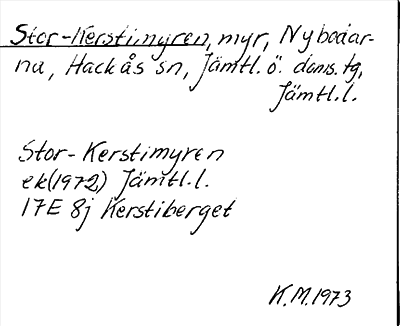 Stor-Kerstimyren, myr, Nybodar-
na, Hackås sn, Jämtl.ö. doms.tg,
Jämtl.l.
Stor-Kerstimyren
ek(1972) Jämtl.l.
17E 8j Kerstiberget
K.M.1973